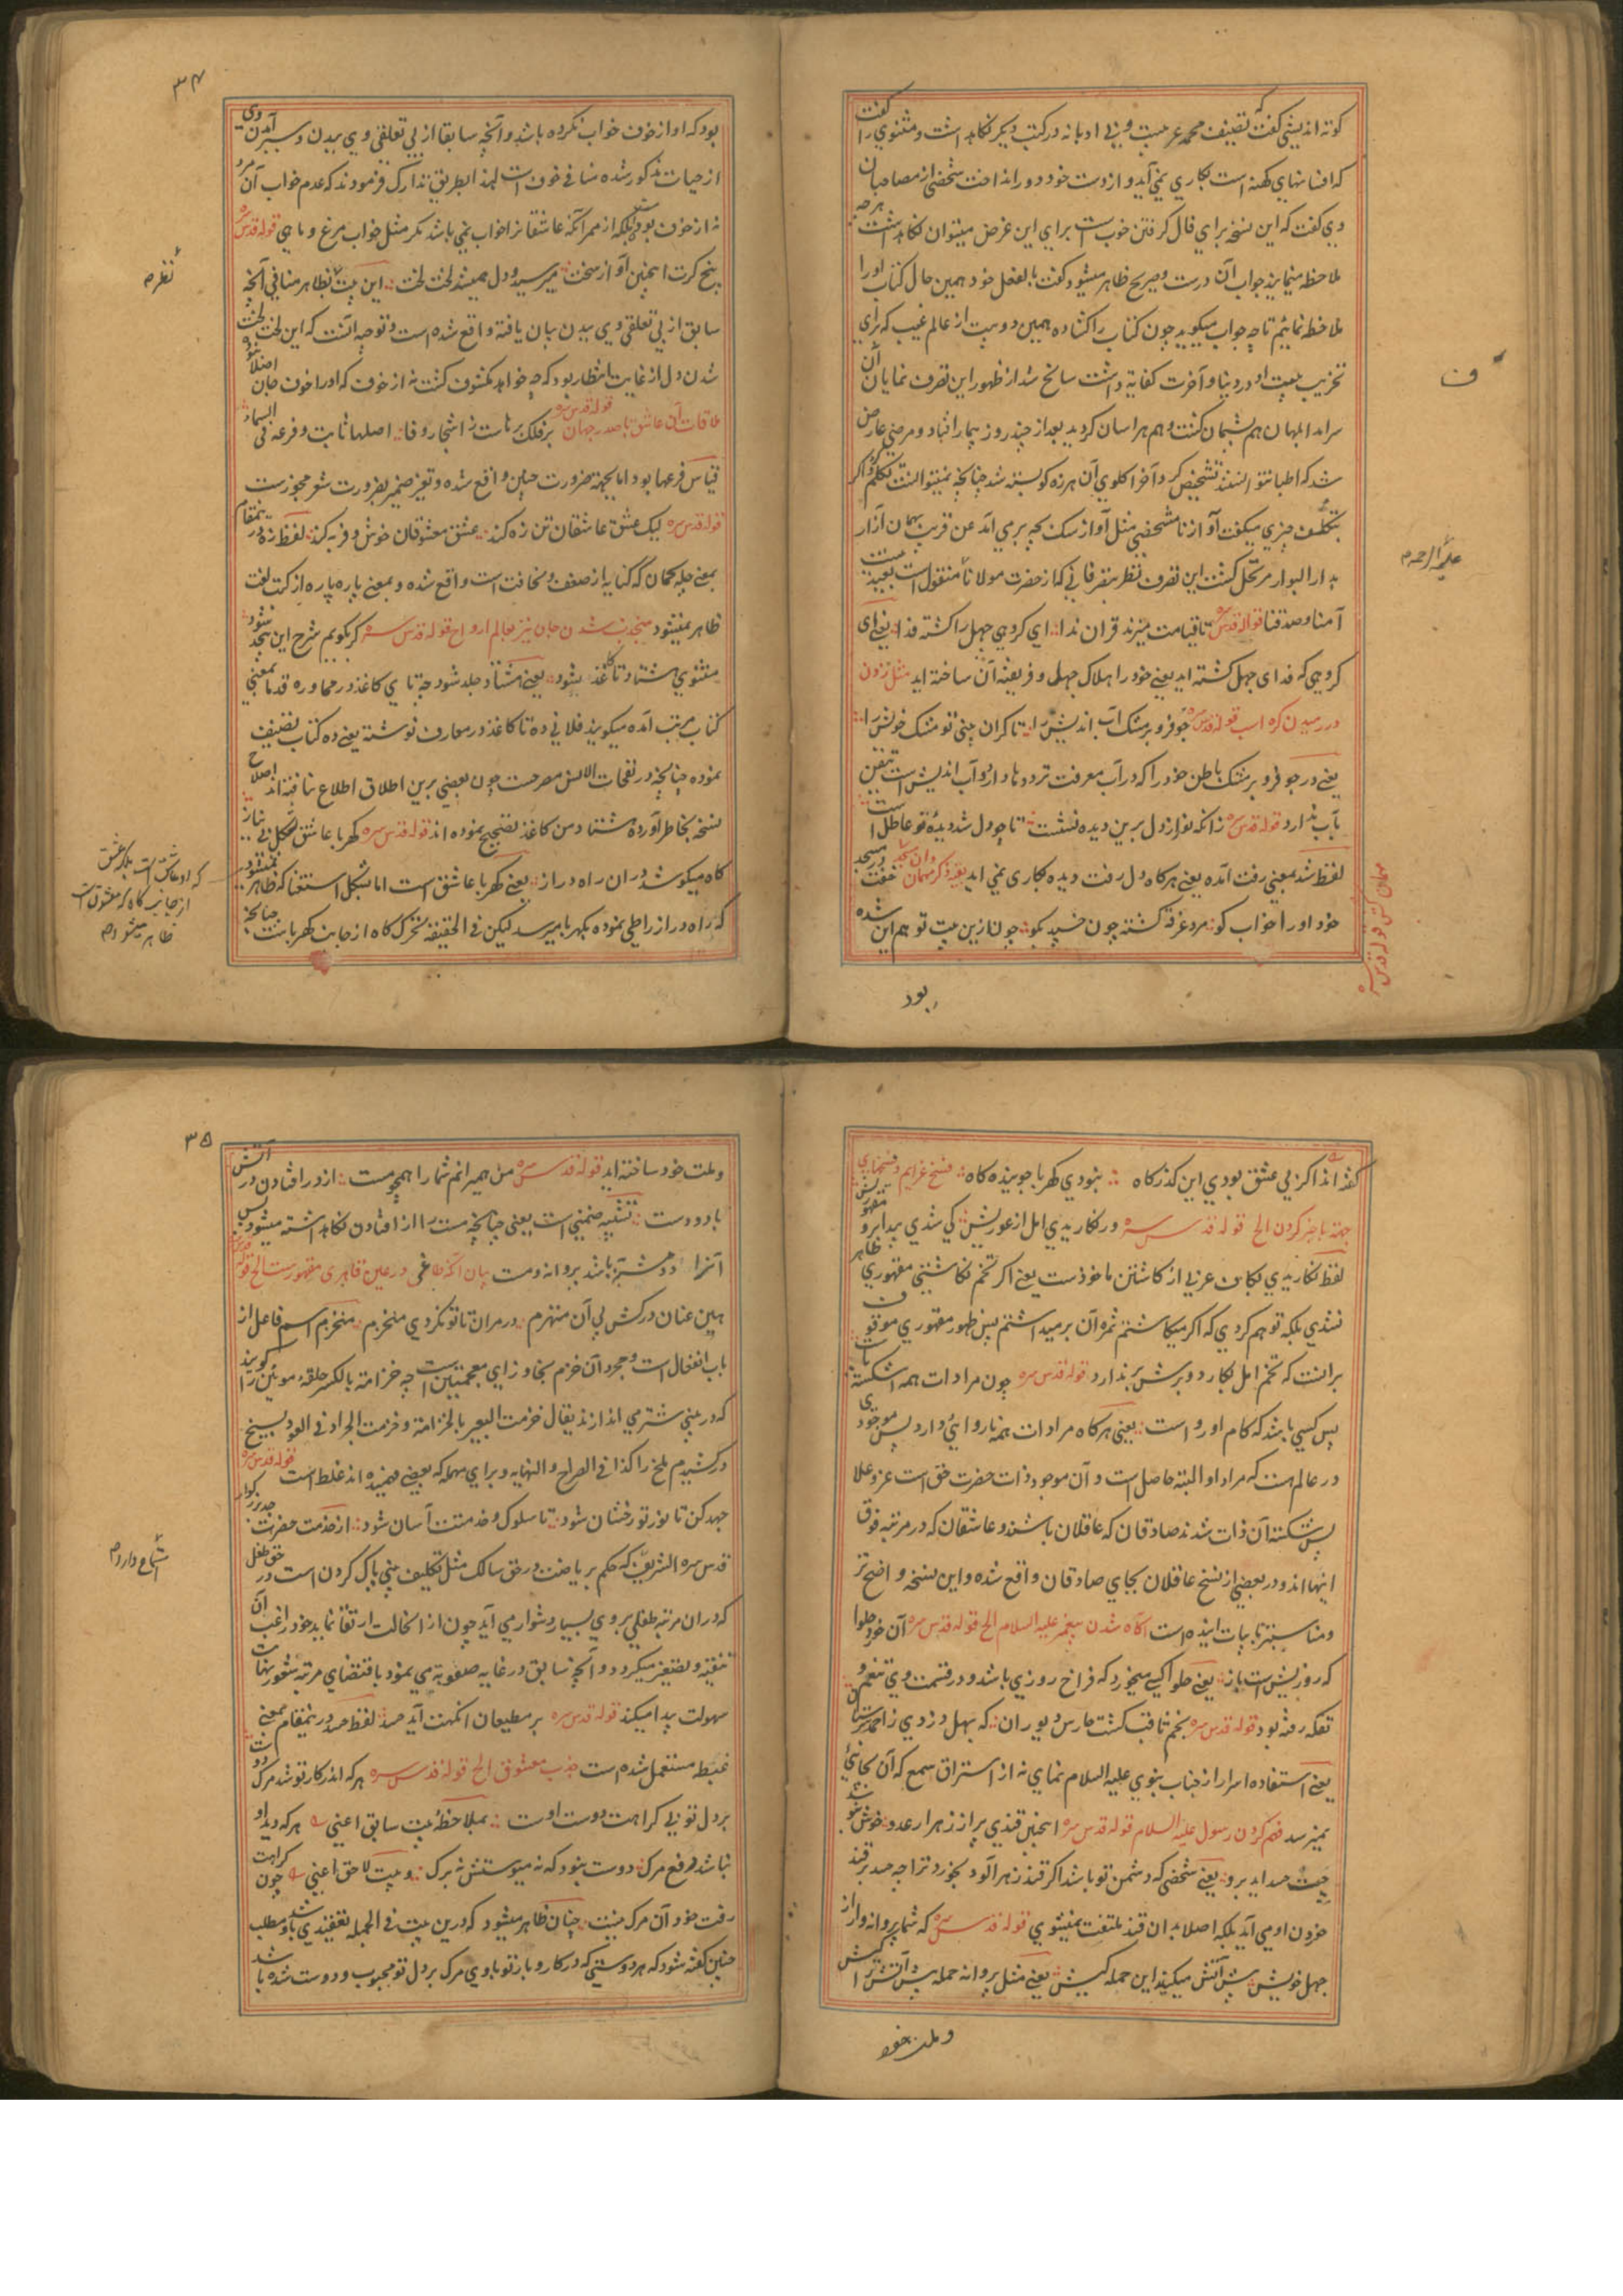 کوته اندیشی گفت که تصنیف محمد عرب است و بی ادبانه در کتب دیگر نگاه داشت و مثنوی را گفت
که افسانهای کهنه است بکاری نمی آید و از دست خود دور انداخت شخصی از مصاحبان
وی گفت که این نسخه برای فال گرفتن خوب است برای این غرض میتوان نگاه داشت هر چه
ملاحظه مینمایند جواب آن درست و صریح ظاهر میشود گفت بالفعل خود همین حال کتاب او را
ملاحظه نمائیم تا چه جواب میگوید چون کتاب را گشاده همین دو بیت از عالم غیب که برای
تخریب او در دنیا و آخرت کفایه داشت سانح شد از ظهور این تصرف نمایان آن
سرآمد ابلهان هم پشیمان گشت و هم هراسان گردید بعد از چند روز بیمار افتاد و مرضی عارض
شد که اطبا نتوانستند تشخیص کرد و آخر گلوی آن هرزه گو بسته شد چنانچه نمیتوانست تکلم کرد و اگر
بتکلف چیزی میگفت آواز نامشخصی مثل آواز سگ بچه برمی آمد عن قریب بهمان آزار
بدار البوار مرتحل گشت این تصرف نظر بتصرفاتی که از حضرت مولانا منقول است بعید نیست
آمنا و صدقنا قوله قدس سره تا قیامت میزند قرآن ندا ای گروهی جهل را گشته فدا یعنی ای
گروهی که فدای جهل گشته اید یعنی خود را هلاک جهل و فریفته آن ساخته اید مثل زدن
در رمیدن کره اسب قوله قدس سره جو فرو بر مشک آب اندیش را تا گران بینی تو مشک خویش را
یعنی در جو فرو بر مشک باطن خود را که در آب معرفت تردد ها دارد و آب اندیش است تیقن
بآب ندارد قوله قدس سره زانکه نور از دل برین دیده نشست تا چو دل شد دیده تو عاطل است
لفظ شد بمعنی رفت آمده یعنی هرگاه دل رفت دیده بکاری نمی آید بقیه ذکر مهمان و آن مسجد خفت در مسجد
خود او را خواب کو مرد غرقه گشته چون خسپد بجو چون ازین بیت توهم این شده
بود
علیه الرحمه
مهمان کش قوله قدس سره
۳۴
بود که او از خوف خواب نکرده باشد و آنچه سابقا از بی تعلقی وی ببدن و سیر آمدن وی
از حیات مذکور شده منافی خوف است لهذا بطریق تدارک فرمودند که عدم خواب آن مرد
نه از خوف بود بلکه از ممر آنکه عاشقانرا خواب نمی باشد مگر مثل خواب مرغ و ماهی قوله قدس سره
پنج کرت اینچنین آواز سخت میرسید و دل همیشد لخت لخت این بیت بظاهر منافی آنچه
سابق از بی تعلقی وی ببدن بیان یافته واقع شده است و توجیه آنست که این لخت لخت
شدن دل از غایت انتظار بود که چه خواهد مکشوف گشت نه از خوف که او را خوف جان اصلا نبود
ملاقات آن عاشق با صدر جهان قوله قدس سره بر فلک برهاست ز اشجار وفا اصلها ثابت و فرعه فی السماء
قیاس فرعها بود اما بجهة ضرورت چنین واقع شده و تغیر ضمیر بضرورت شعر مجوز است
قوله قدس سره لیک عشق عاشقان تن زه کند عشق معشوقان خوش و فربه کند لفظ زه درینمقام
بمعنی چله کمان که کنایه از ضعف و نحافت است واقع شده و بمعنی پاره پاره از کتب لغت
ظاهر نمیشود منجذب شدن جان نیز بعالم ارواح قوله قدس سره گر بگویم شرح این بیحد شود
مثنوی هشتاد تا کاغذ شود یعنی هشتاد جلد شود چه تای کاغذ در محاوره قدما بمعنی
کتاب مرتب آمده میگویند فلانی ده تا کاغذ در معارف نوشته یعنی ده کتاب تصنیف
نموده چنانچه در نفحات الانس مصرحست چون بعضی برین اطلاق اطلاع نیافته اند اصلاح
نسخه بخاطر آورده هشتاد من کاغذ تصحیح نموده اند قوله قدس سره کهربا عاشق بشکل بی نیاز
کاه میکوشد در ان راه دراز یعنی کهربا عاشق است اما بشکل استغنا که ظاهر نمیشود
که راه دراز را طی نموده بکهربا میرسد لیکن فی الحقیقه تحرک کاه از جانب کهربا ست چنانچه
که او عاشق است بلکه عشق
از جانب کاه که معشوق است
ظاهر میشود
گفته اند اگر نی عشق بودی این گذرگاه نبودی کهربا جوینده کاه فسخ عزایم و نسخهای
جهة باخبر کردن الخ قوله قدس سره ور نکاریدی امل از عوریش کی شدی پیدا برو مقهوریش
لفظ نکاریدی بکاف عربی از کاشتن ماخوذست یعنی اگر تخم نکاشتی مقهوری ظاهر
نشدی بلکه توهم کردی که اگر میکاشتم ثمره آن برمیداشتم پس ظهور مقهوری موقوف
برانست که تخم امل بکارد و برش برندارد قوله قدس سره چون مرادات همه اشکسته پاست
پس کسی باشد که کام او رواست یعنی هرگاه مرادات همه ناروائی دارد پس موجودی
در عالم هست که مراد او البته حاصل است و آن موجود ذات حضرت حق است عز و علا
پس شکسته آن ذات شدند صادقان که عاقلان باشند و عاشقان که در مرتبه فوق
اینها اند و در بعضی از نسخ عاقلان بجای صادقان واقع شده و این نسخه واضح تر
و مناسبتر بابیات آینده است آگاه شدن پیغمبر علیه السلام الخ قوله قدس سره آن خورد حلوا
که روزیش است باز یعنی حلوا کسی میخورد که فراخ روزی باشد و در قسمت وی تنعم و
تفکه رفته بود قوله قدس سره نجم ثاقب گشت حارس دیو ران که بهل دزدی ز احمد سر ستان
یعنی استفاده اسرار از جناب نبوی علیه السلام نمای نه از استراق سمع که آن بجائی
نمیرسد فهم کردن رسول علیه السلام قوله قدس سره اینچنین قندی پر از زهر ار عدو خوش شود
چیست حسد آید برو یعنی شخصی که دشمن تو باشد اگر قند زهر آلود بخورد ترا چه حسد بر قند
خوردن او می آید بلکه اصلا بدان قند ملتفت نمیشوی قوله قدس سره که شما پروانه وار از
جهل خویش پیش آتش میکنید این حمله کیش یعنی مثل پروانه حمله پیش آتش را کیش
و ملت خود
۳۵
و ملت خود ساخته اید قوله قدس سره من همیرانم شما را همچو مست از در افتادن در آتش
با دو دست تشبیه ضمنی است یعنی چنانچه مست را از افتادن نگاه داشته میشود پس
بیان آنکه طاغی در عین قاهری مقهورست الخ قوله قدس سره
هین عنان درکش پی آن منهزم در مران تا تو نگردی منخزم منخزم اسم فاعل از
باب انفعال است و مجرد آن خزم بخا و زای معجمتین است چه خزامه بالکسر حلقه موئین را گویند
که در بینی شتر می اندازند یقال خزمت البعیر بالخزامة و خزمت الجراد فی العود بسیخ
درکشیدم ملخ را کذا فی الصراح و النهایه و برای مهمله که بعضی فهمیده اند غلط است قوله قدس سره
جهد کن تا نور تو رخشان شود تا سلوک و خدمتت آسان شود از خدمت حضرت
قدس سره الشریف که حکم بر ریاضت در حق سالک مثل تکلیف بینی پاک کردن است در حق طفل
که در ان مرتبه طفلی بر وی بسیار دشوار می آید چون از انحالت ارتقا نماید خود راغب آن
تنقیه و تصغیر میگردد و آنچه سابق در غایه صعوبة می نمود باقتضای مرتبه شعور بنهایت
سهولت پیدا میکند قوله قدس سره بر مطیعان آنگهت آید حسد لفظ حسد درینمقام بمعنی
غبطه مستعمل شده است جذب معشوق الخ قوله قدس سره هر که اندر کار تو شد مرگ دوست
بر دل تو بی کراهت دوست اوست بملاحظه بیت سابق اعنی هر که دید او
نباشد دفع مرگ دوست نبود که نه میوستش نه برگ و بیت لاحق اعنی چون کراهت
رفت خود آن مرگ نیست چنان ظاهر میشود که درین بیت فی الجمله تعقیدی باشد و مطلب
چنین گفته شود که هر دوستی که در کار و بار تو با وی مرگ بر دل تو محبوب و دوست شده باشد